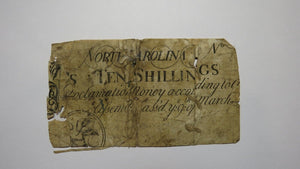 NORTH CAROLINA N
S TEN SHILLINGS
Proclamation Money according to
Assembly March